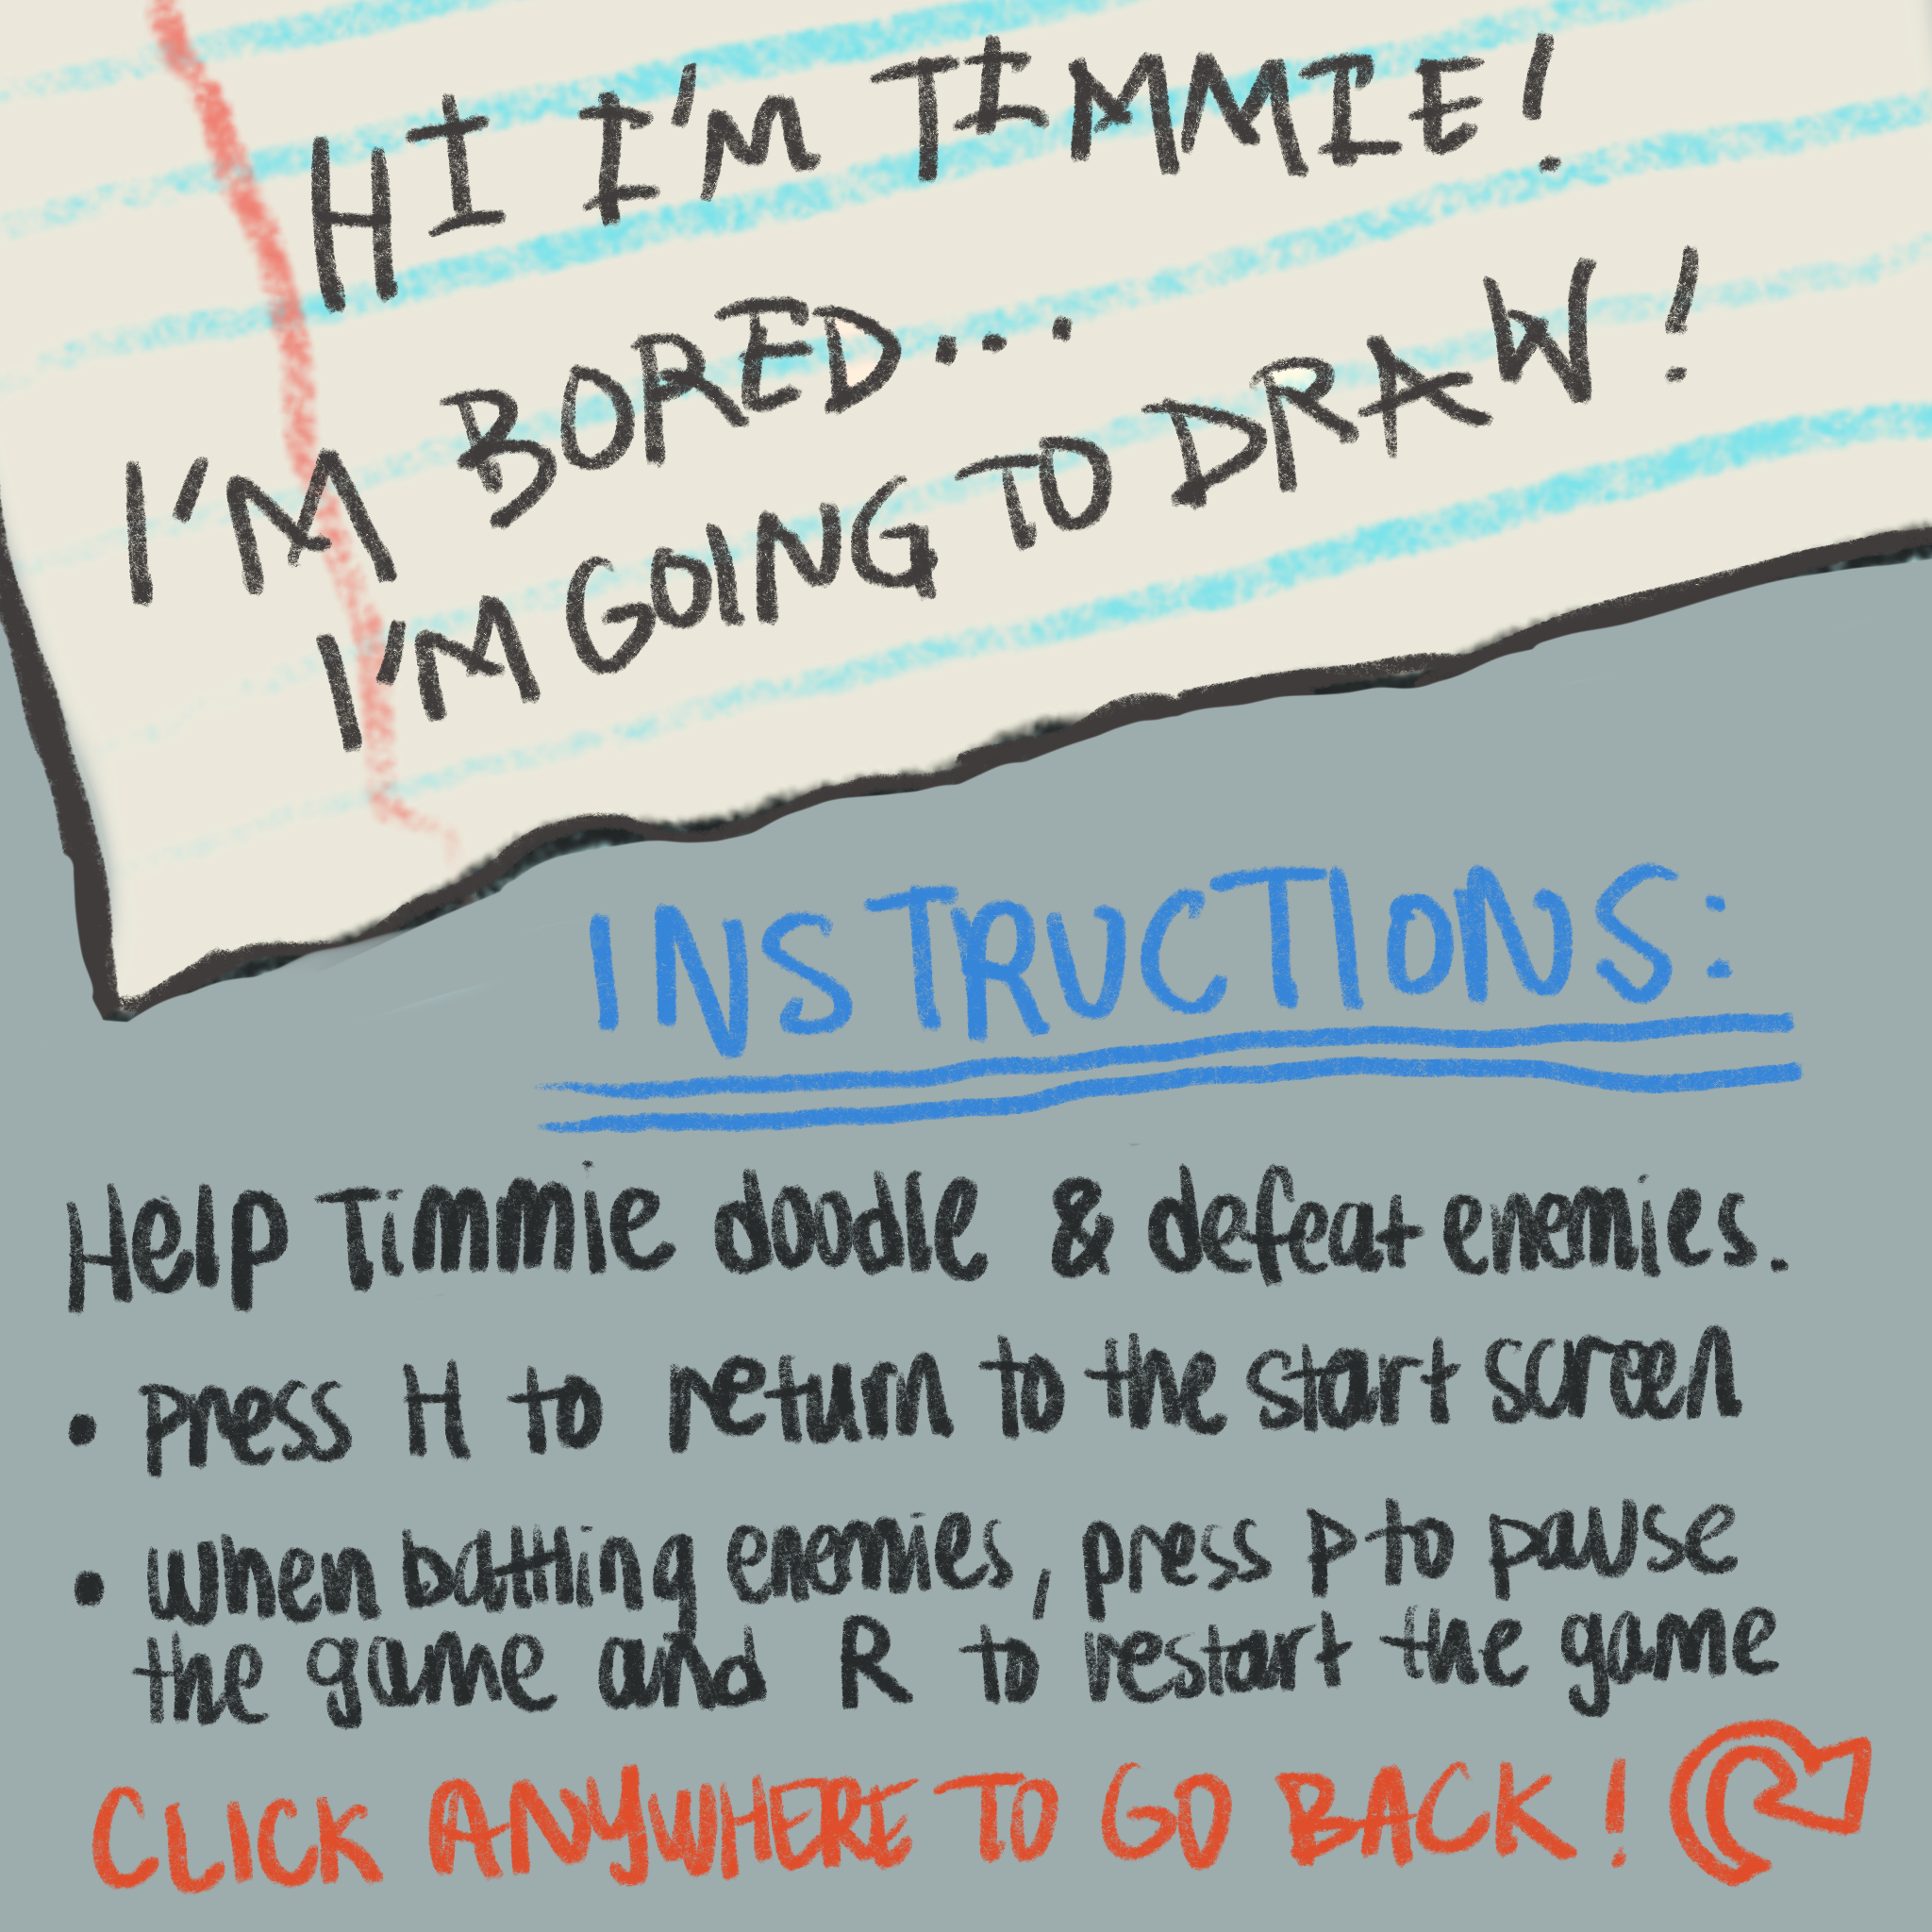 HI I'M TIMMIE!
I'M BORED...
I'M GOING TO DRAW!
INSTRUCTIONS:
Help Timmie doodle & defeat enemies.
• press H to return to the start screen
• when battling enemies, press p to pause
the game and R to restart the game
CLICK ANYWHERE TO GO BACK!